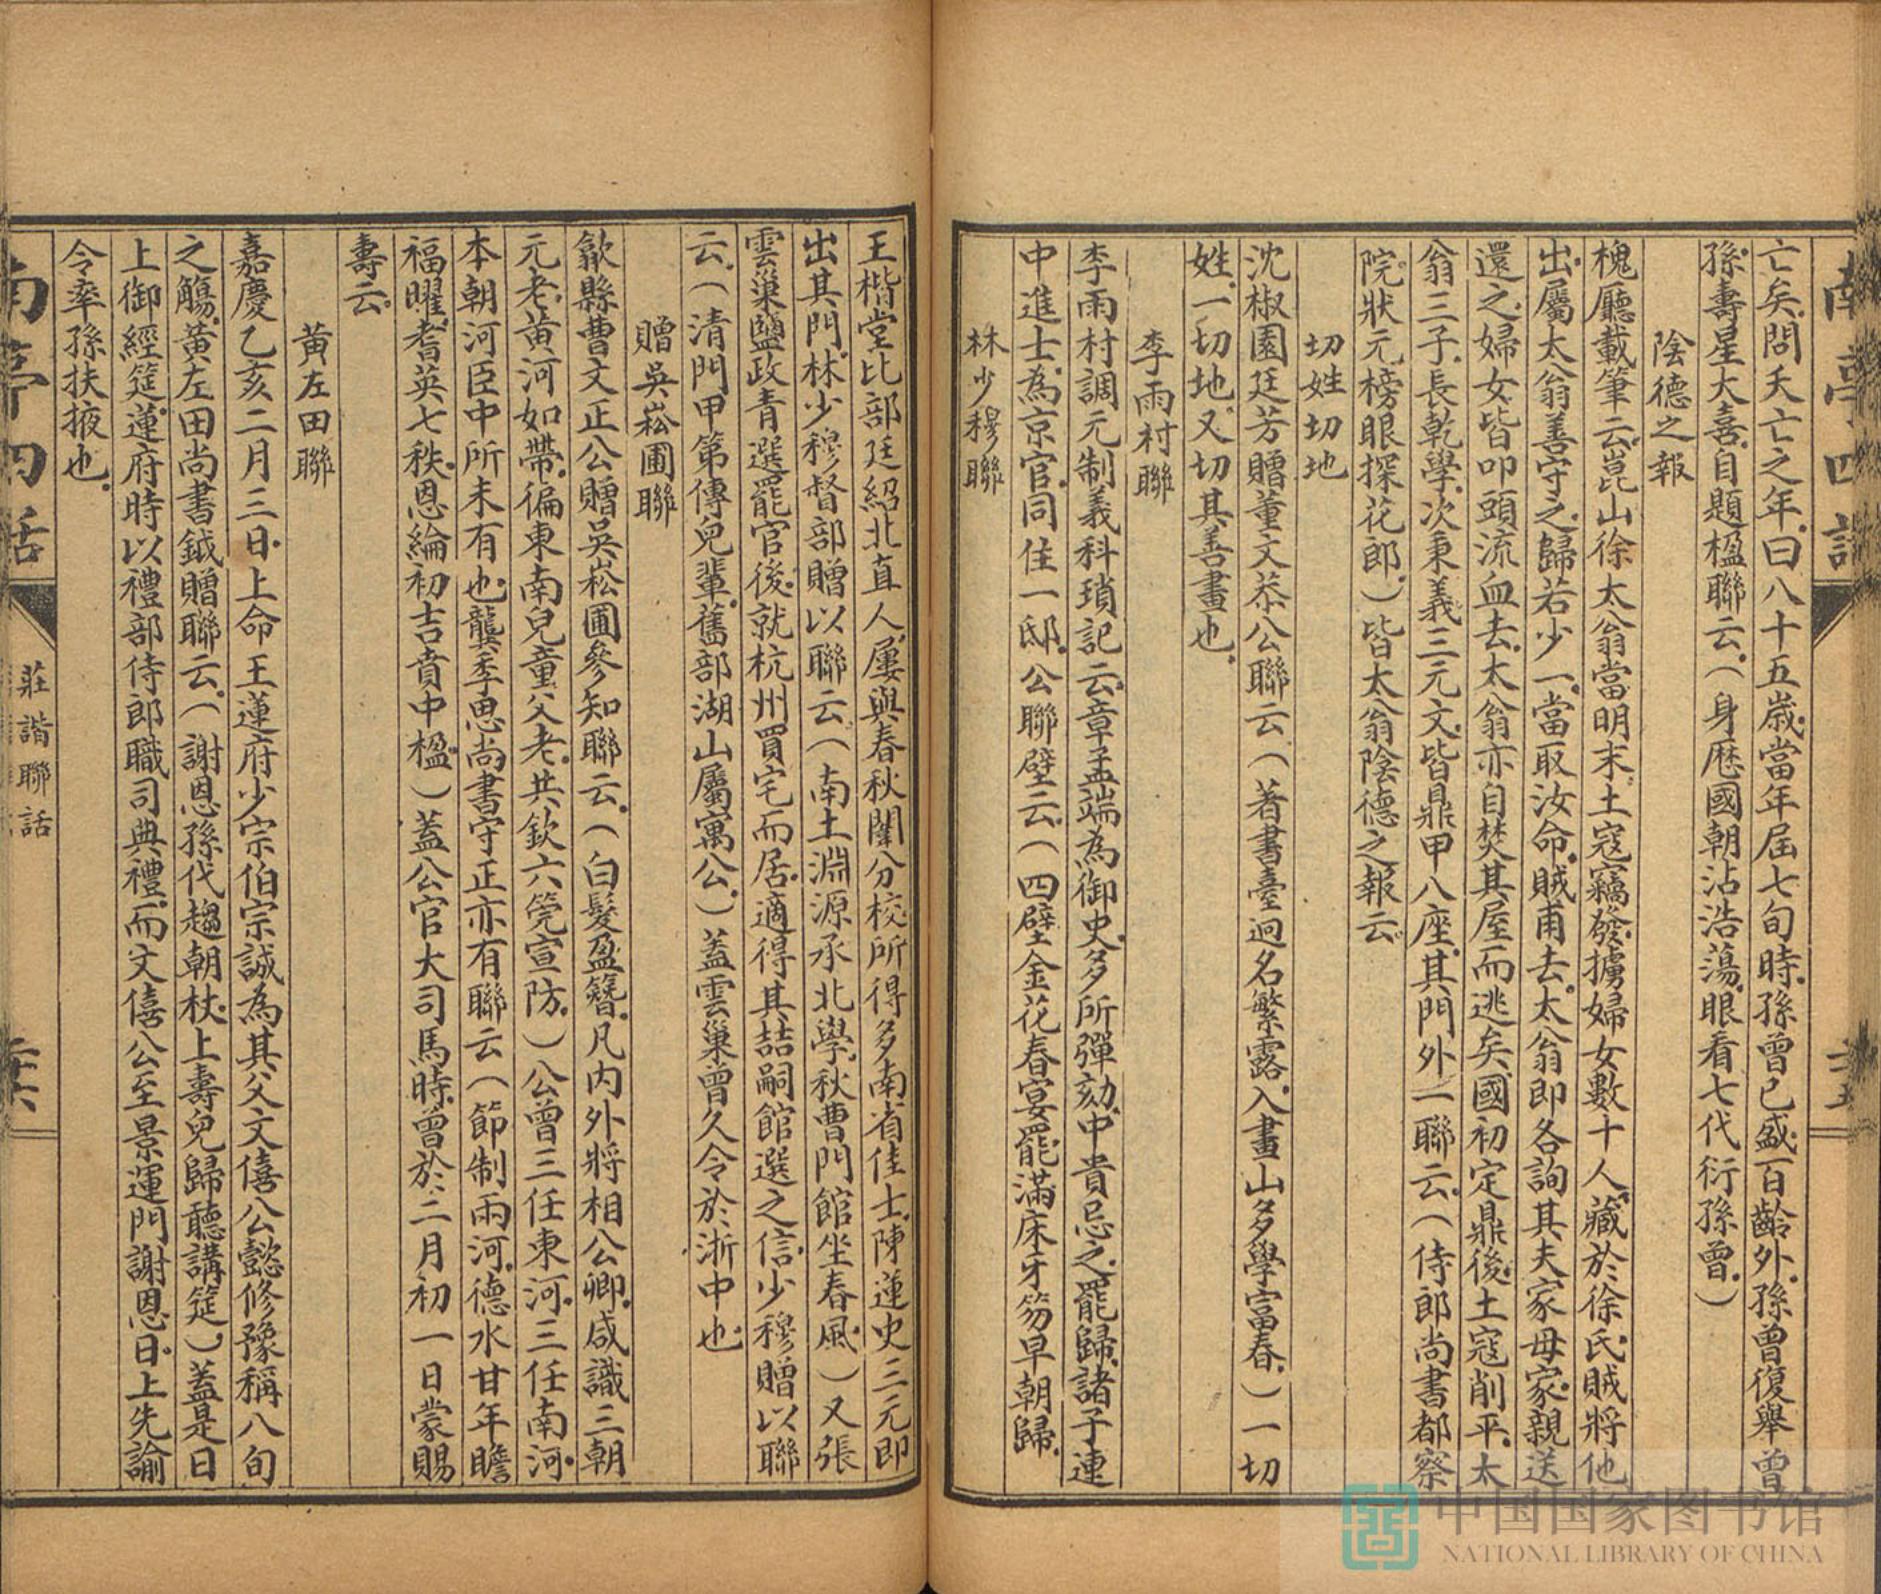 南亭四話
亡矣問夭亡之年曰八十五歲當年屆七旬時孫曾已盛百齡外孫曾復舉曾
孫壽星大喜自題楹聯云（身歷國朝沾浩蕩眼看七代衍孫曾）
陰德之報
槐廳載筆云崑山徐太翁當明末土寇竊發擄婦女數十人藏於徐氏賊將他
出屬太翁善守之歸若少一當取汝命賊甫去太翁即各詢其夫家母家親送
還之婦女皆叩頭流血去太翁亦自焚其屋而逃矣國初定鼎後土寇削平太
翁三子長乾學次秉義三元文皆鼎甲八座其門外一聯云（侍郎尚書都察
院狀元榜眼探花郎）皆太翁陰德之報云
切姓切地
沈椒園廷芳贈董文恭公聯云（著書臺迥名繁露入畫山多學富春）一切
姓一切地又切其善畫也
李雨村聯
李雨村調元制義科瑣記云章孟端為御史多所彈劾中貴忌之罷歸諸子連
中進士為京官同住一邸公聯壁云（四壁金花春宴罷滿床牙笏早朝歸
林少穆聯
王楷堂比部廷紹北直人屢與春秋闈分校所得多南省佳士陳蓮史三元即
出其門林少穆督部贈以聯云（南土淵源承北學秋曹門館坐春風）又張
雲巢鹽政青選罷官後就杭州買宅而居適得其喆嗣館選之信少穆贈以聯
云（清門甲第傳兒輩舊部湖山屬寓公）蓋雲巢曾久令於浙中也
贈吳崧圃聯
歙縣曹文正公贈吳崧圃參知聯云（白髮盈簪凡內外將相公卿咸識三朝
元老黃河如帶徧東南兒童父老共欽六筦宣防）公曾三任東河三任南河
本朝河臣中所未有也龔季思尚書守正亦有聯云（節制兩河德水甘年瞻
福曜耆英七秩恩綸初吉賁中楹）蓋公官大司馬時曾於二月初一日蒙賜
壽云
黃左田聯
嘉慶乙亥二月三日上命王蓮府少宗伯宗誠為其父文僖公懿修豫稱八旬
之觴黃左田尚書鉞贈聯云（謝恩孫代趨朝杖上壽兒歸聽講筵）蓋是日
上御經筵蓮府時以禮部侍郎職司典禮而文僖公至景運門謝恩日上先諭
令率孫扶掖也
南亭四話
莊諧聯話
中国国家图书馆
NATIONAL LIBRARY OF CHINA